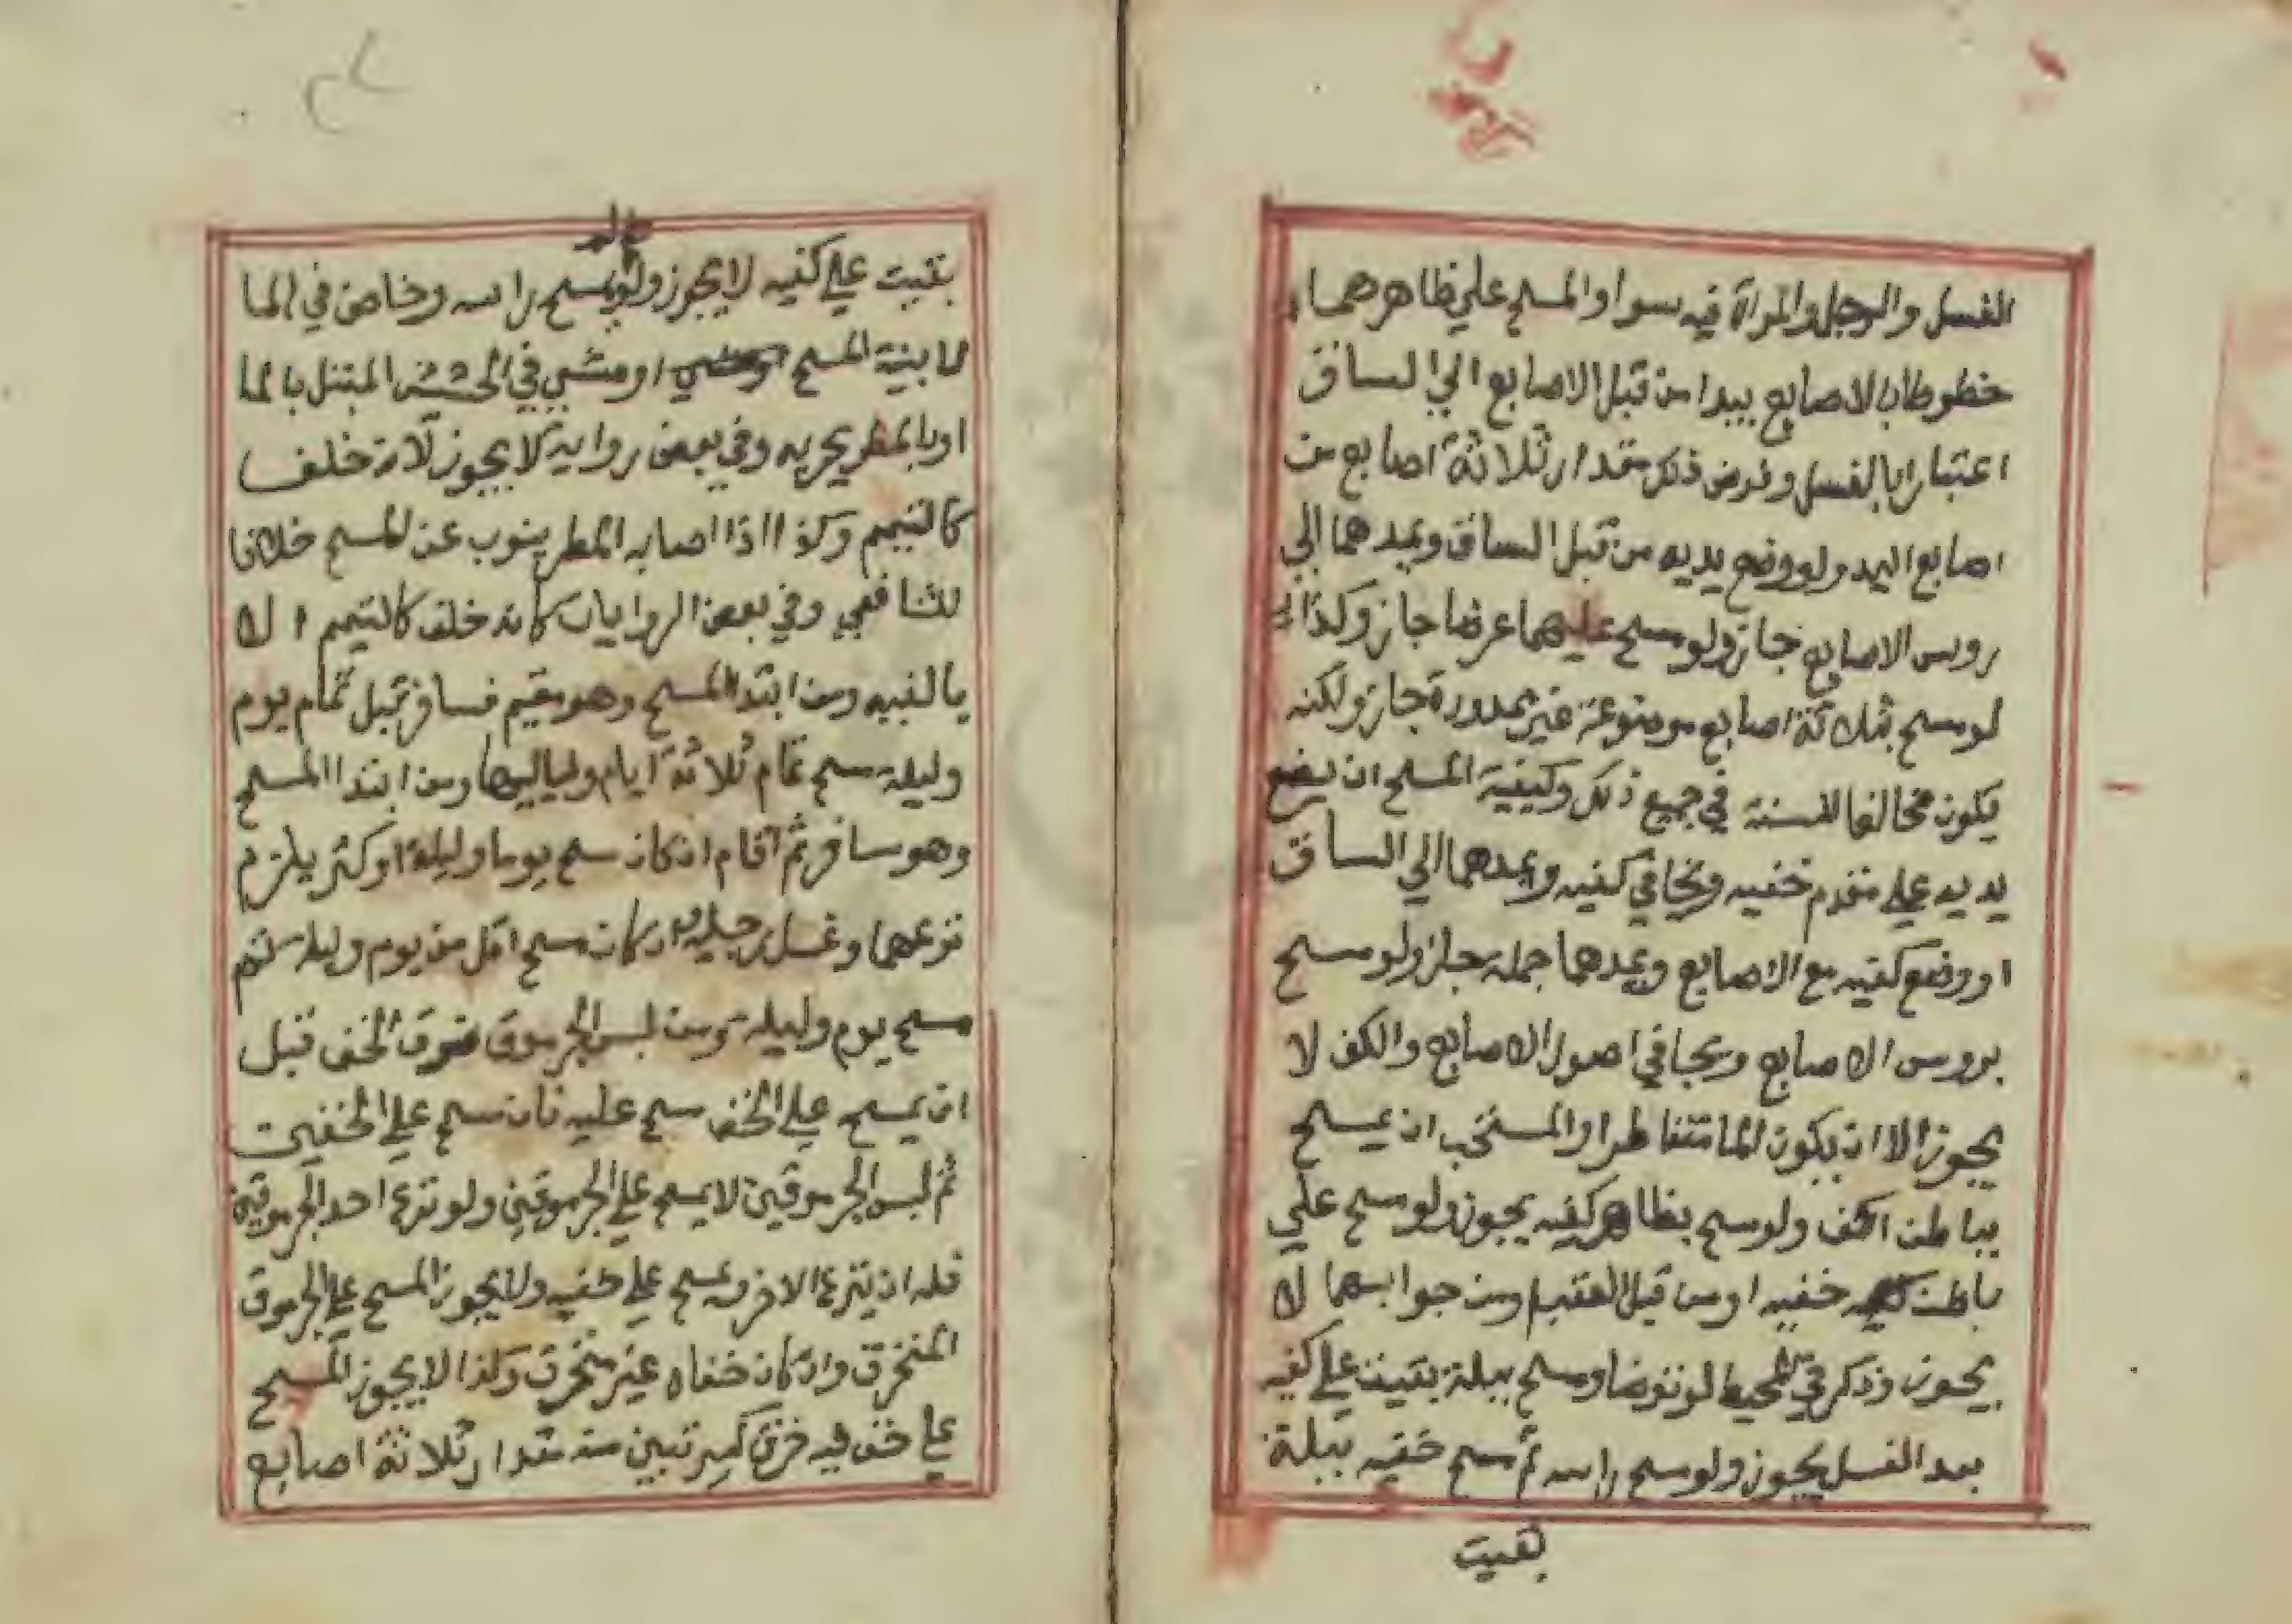 الغسل والرجل والمراة فيه سوا والمسح علي ظاهرهما
خطوطا بالاصابع يبدا من قبل الاصابع الي الساق
اعتبارا بالغسل وفرض ذلك مقدار ثلاثة اصابع من
اصابع اليد ولو وضع يديه من قبل الساق ويمدهما الي
رويس الاصابع جاز ولو مسح عليهما عرضا جاز وكذا
لو مسح بثلاثة اصابع موضوعة غير ممدودة جاز ولكنه
يكون مخالفا للسنة في جميع ذلك وكيفية المسح ان يضع
يديه علي مقدم خفيه ويجافي كفيه ويمدهما الي الساق
او وضع كفيه مع الاصابع ويمدهما جملة جاز ولو مسح
برويس الاصابع ويجافي اصول الاصابع والكف لا
يجوز الا ان يكون الما متقاطرا والمستحب ان يمسح
بباطن الكف ولو مسح بظاهر كفيه يجوز ولو مسح علي
باطن خفيه او من قبل العقب او من جوانبهما لا
يجوز وذكر في المحيط لو توضا ومسح ببلة بقيت علي كفيه
بعد الغسل يجوز ولو مسح راسه ثم مسح خفيه ببلة
بقيت
بقيت علي كفيه لا يجوز ولو لم يمسح راسه وخاض في الما
لا بنية المسح او مشي في الحشيش المبتل بالما
او بالمطر يجزيه وفي بعض رواية لا يجوز لانه خلف
كالتيمم وكذا اذا اصابه المطر ينوب عن المسح خلافا
للشافعي وفي بعض الروايات كانه خلف كالتيمم الا
بالنيه ومن ابتدا المسح وهو مقيم فسافر قبل تمام يوم
وليلة مسح تمام ثلاثة ايام ولياليها ومن ابتدا المسح
وهو مسافر ثم اقام ان كان مسح يوما وليلة او كثر يلزم
نزعهما وغسل رجليه وان كان مسح اقل من يوم وليله تمم
مسح يوم وليله ومن لبس الجرموق فوق الخف قبل
ان يمسح علي الخف مسح عليه فان مسح علي الخفين
ثم لبس الجرموقين لا يمسح علي الجرموقين ولو نزع احد الجرموقين
فله ان ينزع الاخر ويمسح علي خفيه ولا يجوز المسح علي الجرموق
المنخرق وان كان خفاه غير منخرق وكذا لا يجوز المسح
علي خف فيه خرق كبير تبين منه مقدار ثلاثة اصابع